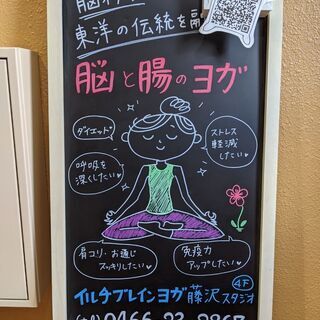 東洋の伝統を
脳と腸のヨガ
ダイエット
ストレス
軽減
したい♥
呼吸を
深くしたい♥
肩コリ・お通じ
スッキリしたい♥
免疫力
アップしたい♥
イルチブレインヨガ 藤沢スタジオ
4F